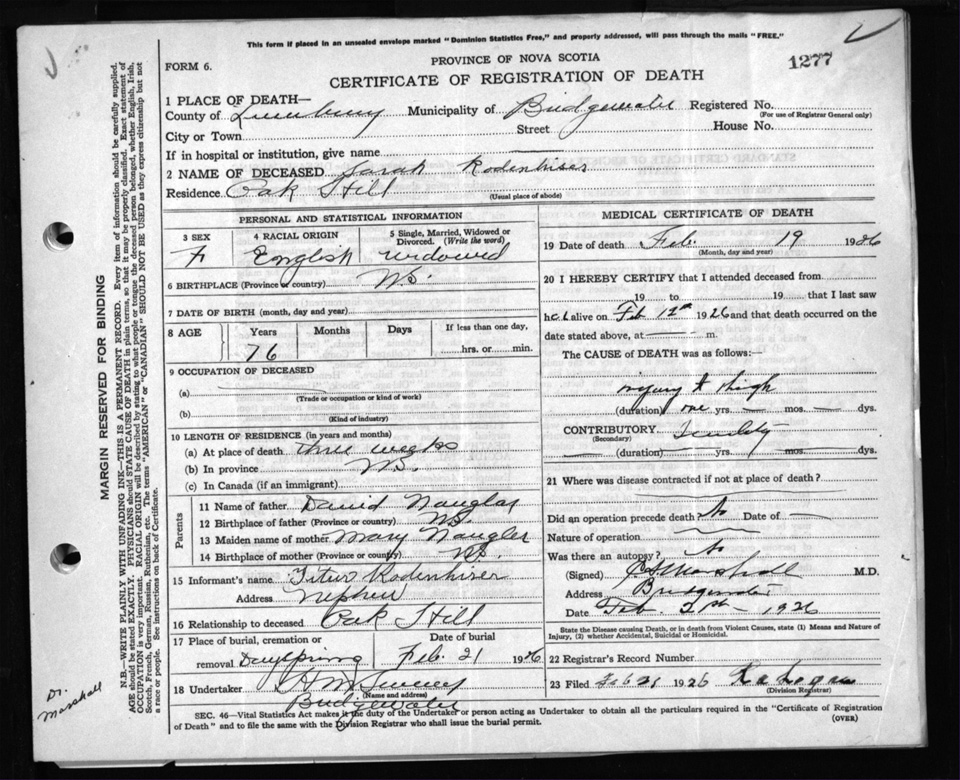 This form if placed in an unsealed envelope marked "Dominion Statistics Free," and properly addressed, will pass through the mails "FREE."
FORM 6.
PROVINCE OF NOVA SCOTIA
1277
CERTIFICATE OF REGISTRATION OF DEATH
1 PLACE OF DEATH—
County of Lunenburg Municipality of Bridgewater Registered No.
(For use of Registrar General only)
City or Town Street House No.
If in hospital or institution, give name —
2 NAME OF DECEASED Sarah Rodenhiser
Residence Oak Hill
(Usual place of abode)
PERSONAL AND STATISTICAL INFORMATION
3 SEX 4 RACIAL ORIGIN 5 Single, Married, Widowed or Divorced. (Write the word)
F English widowed
6 BIRTHPLACE (Province or country) N.S.
7 DATE OF BIRTH (month, day and year)
8 AGE Years Months Days If less than one day,
76 hrs. or min.
9 OCCUPATION OF DECEASED
(a)
(Trade or occupation or kind of work)
(b)
(Kind of industry)
10 LENGTH OF RESIDENCE (in years and months)
(a) At place of death three weeks
(b) In province N.S.
(c) In Canada (if an immigrant)
Parents
11 Name of father David Naugler
12 Birthplace of father (Province or country) N.S.
13 Maiden name of mother Mary Naugler
14 Birthplace of mother (Province or country) N.S.
15 Informant's name Titus Rodenhiser
Address Nephew
16 Relationship to deceased Oak Hill
17 Place of burial, cremation or Date of burial
removal Dayspring Feb. 21 1926
18 Undertaker
(Name and address)
Bridgewater
MEDICAL CERTIFICATE OF DEATH
19 Date of death Feb. 19 1926
(Month, day and year)
20 I HEREBY CERTIFY that I attended deceased from
19 to 19 that I last saw
h alive on Feb 12th 1926 and that death occurred on the
date stated above, at — m.
The CAUSE of DEATH was as follows:—
injury to thigh
(duration) one yrs. — mos. — dys.
CONTRIBUTORY Senility
(Secondary)
(duration) yrs. mos. dys.
21 Where was disease contracted if not at place of death?
Did an operation precede death? No Date of —
Nature of operation
Was there an autopsy? No
(Signed) Marshall M.D.
Address Bridgewater
Date Feb. 1926
State the Disease causing Death, or in death from Violent Causes, state (1) Means and Nature of Injury, (2) whether Accidental, Suicidal or Homicidal.
22 Registrar's Record Number
23 Filed Feb 25 1926
(Division Registrar)
SEC. 46—Vital Statistics Act makes it the duty of the Undertaker or person acting as Undertaker to obtain all the particulars required in the "Certificate of Registration
of Death" and to file the same with the Division Registrar who shall issue the burial permit.
(OVER)
MARGIN RESERVED FOR BINDING
N.B.—WRITE PLAINLY WITH UNFADING INK—THIS IS A PERMANENT RECORD. Every item of information should be carefully supplied.
AGE should be stated EXACTLY. PHYSICIANS should STATE CAUSE OF DEATH in plain terms, so that it may be properly classified. Exact statement of
OCCUPATION is very important. RACIAL ORIGIN will be described by stating to what people or tongue the deceased person belonged, whether English, Irish,
Scotch, French, German, Russian, Ruthenian, etc. The terms "AMERICAN" or "CANADIAN" SHOULD NOT BE USED as they express citizenship but not
a race or people. See instructions on back of Certificate.
Dr. Marshall